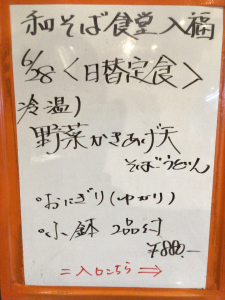 和そば食堂 入福
6/28 <日替定食>
冷温)
野菜かきあげ天
そばorうどん
◦おにぎり(ゆかり)
◦小鉢 2品付
¥880.-
=入口こちら⇒